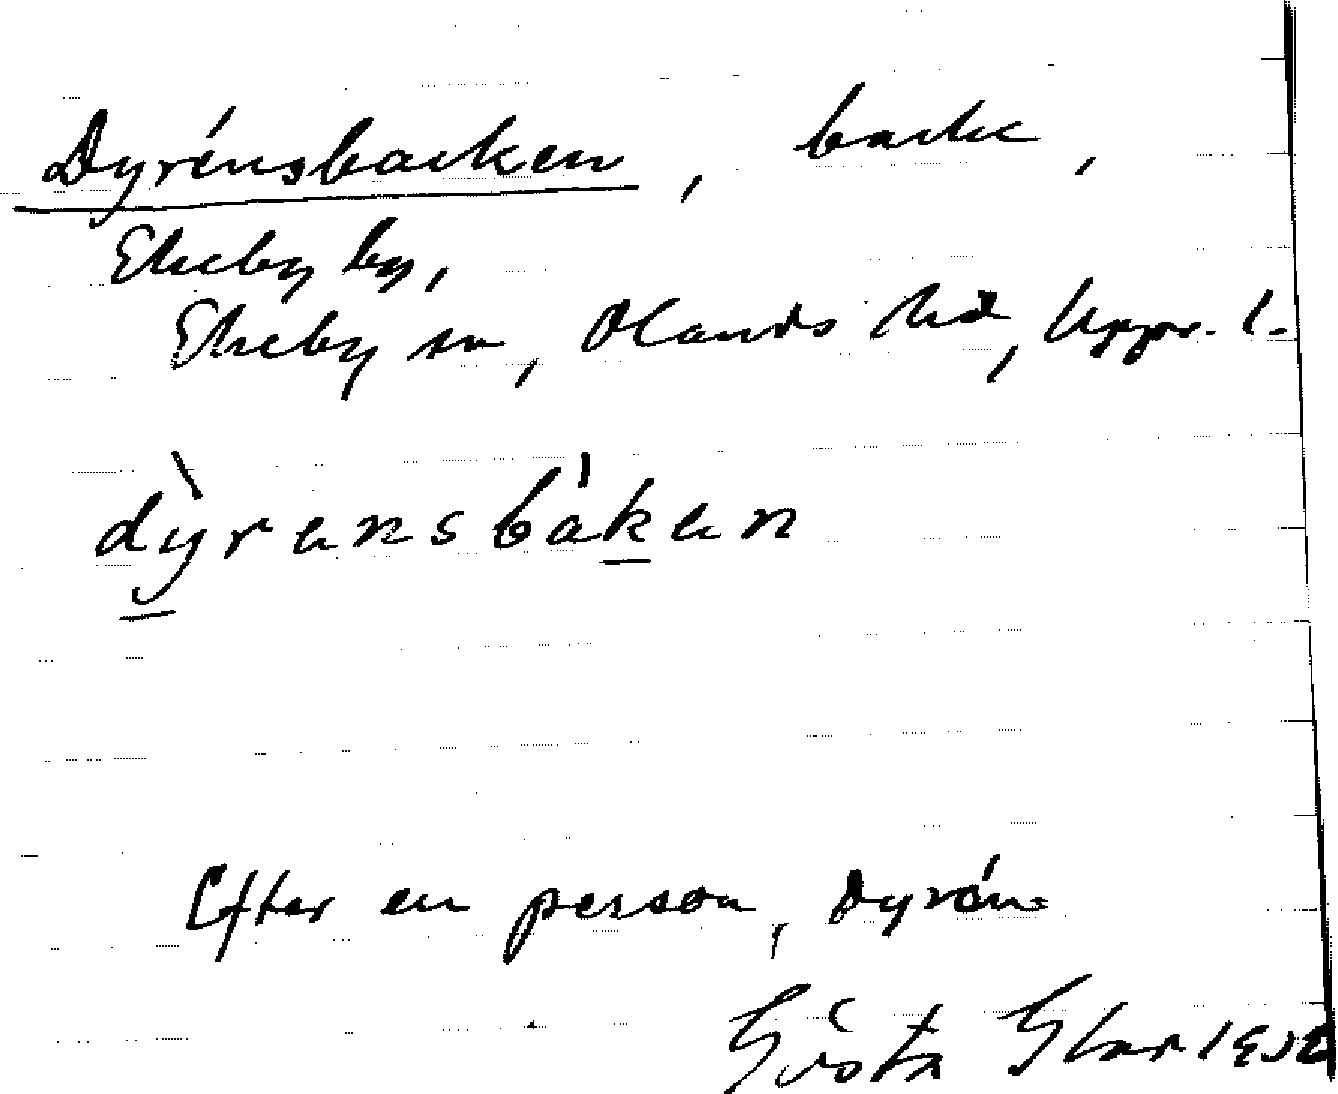 Dyrénsbacken, backe,
Ekeby by,
Ekeby sn, Olands hd, Uppr. l.
dỳrensbàken
Efter en person, Dyrén.
Gösta